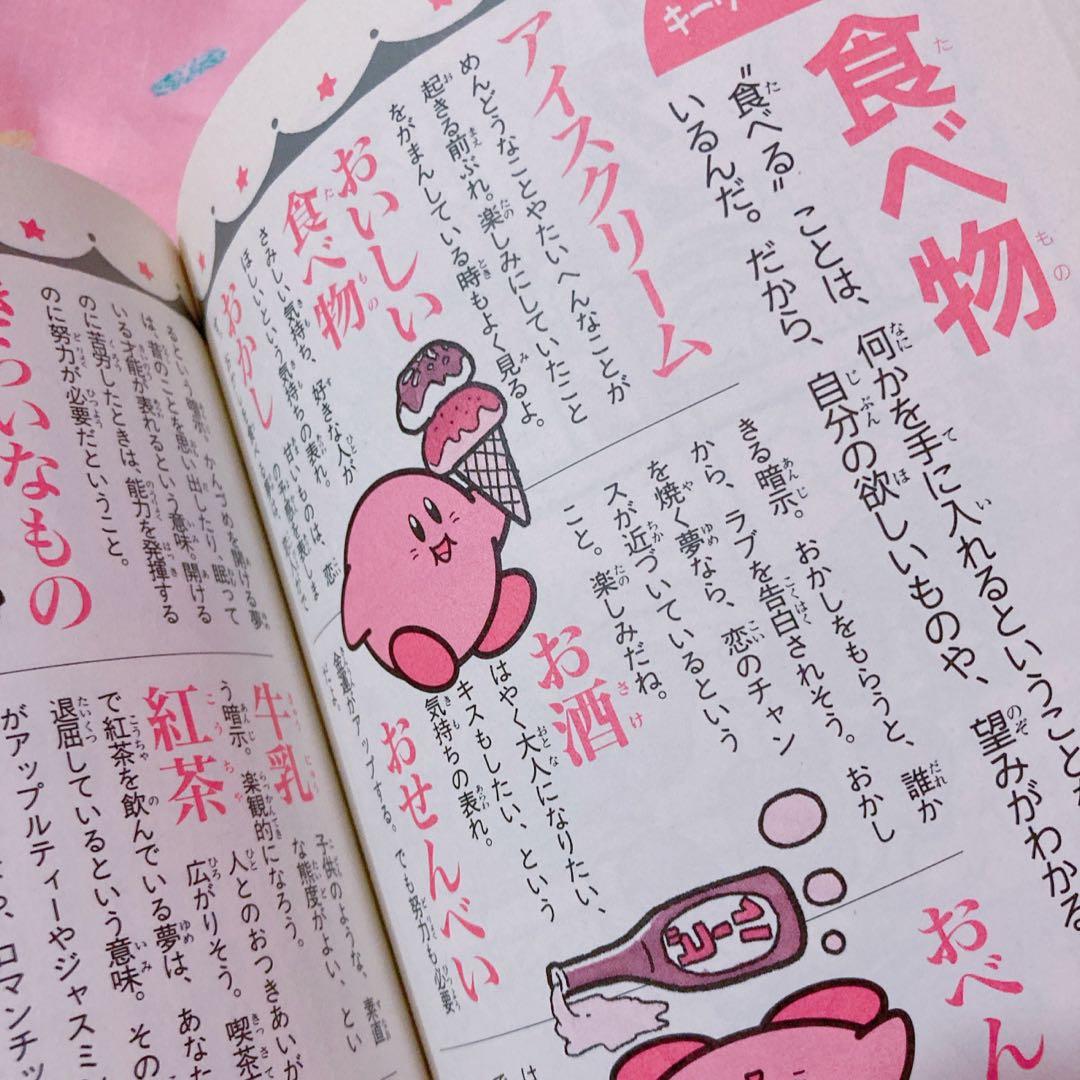 食べ物
"食べる"ことは、何かを手に入れるということ
いるんだ。だから、自分の欲しいものや、望みがわかる
アイスクリーム
めんどうなことやたいへんなことが
起きる前ぶれ。楽しみにしていたこと
をがまんしている時もよく見るよ。
おいしい
食べ物
さみしい気持ち、好きな人が
ほしいという気持ちの表れ。
おかし
甘いものは、恋
きる暗示。おかしをもらうと、誰か
から、ラブを告白されそう。おかし
を焼く夢なら、恋のチャン
スが近づいているという
こと。楽しみだね。
お酒
はやく大人になりたい、
キスもしたい、という
気持ちの表れ。
おせんべい
金運がアップする。でも努力も必要
だよ。
おべん
ビール
るという暗示。かんづめを開ける夢
は、昔のことを思い出したり、眠って
いる才能が表れるという意味。開ける
のに苦労したときは、能力を発揮する
のに努力が必要だということ。
きらいなもの
牛乳
子供のような、素直
な態度がよい、とい
う暗示。楽観的になろう。
紅茶
人とのおつきあいが
広がりそう。喫茶
で紅茶を飲んでいる夢は、あなた
退屈しているという意味。その
がアップルティーやジャスミ
ロマンチッ